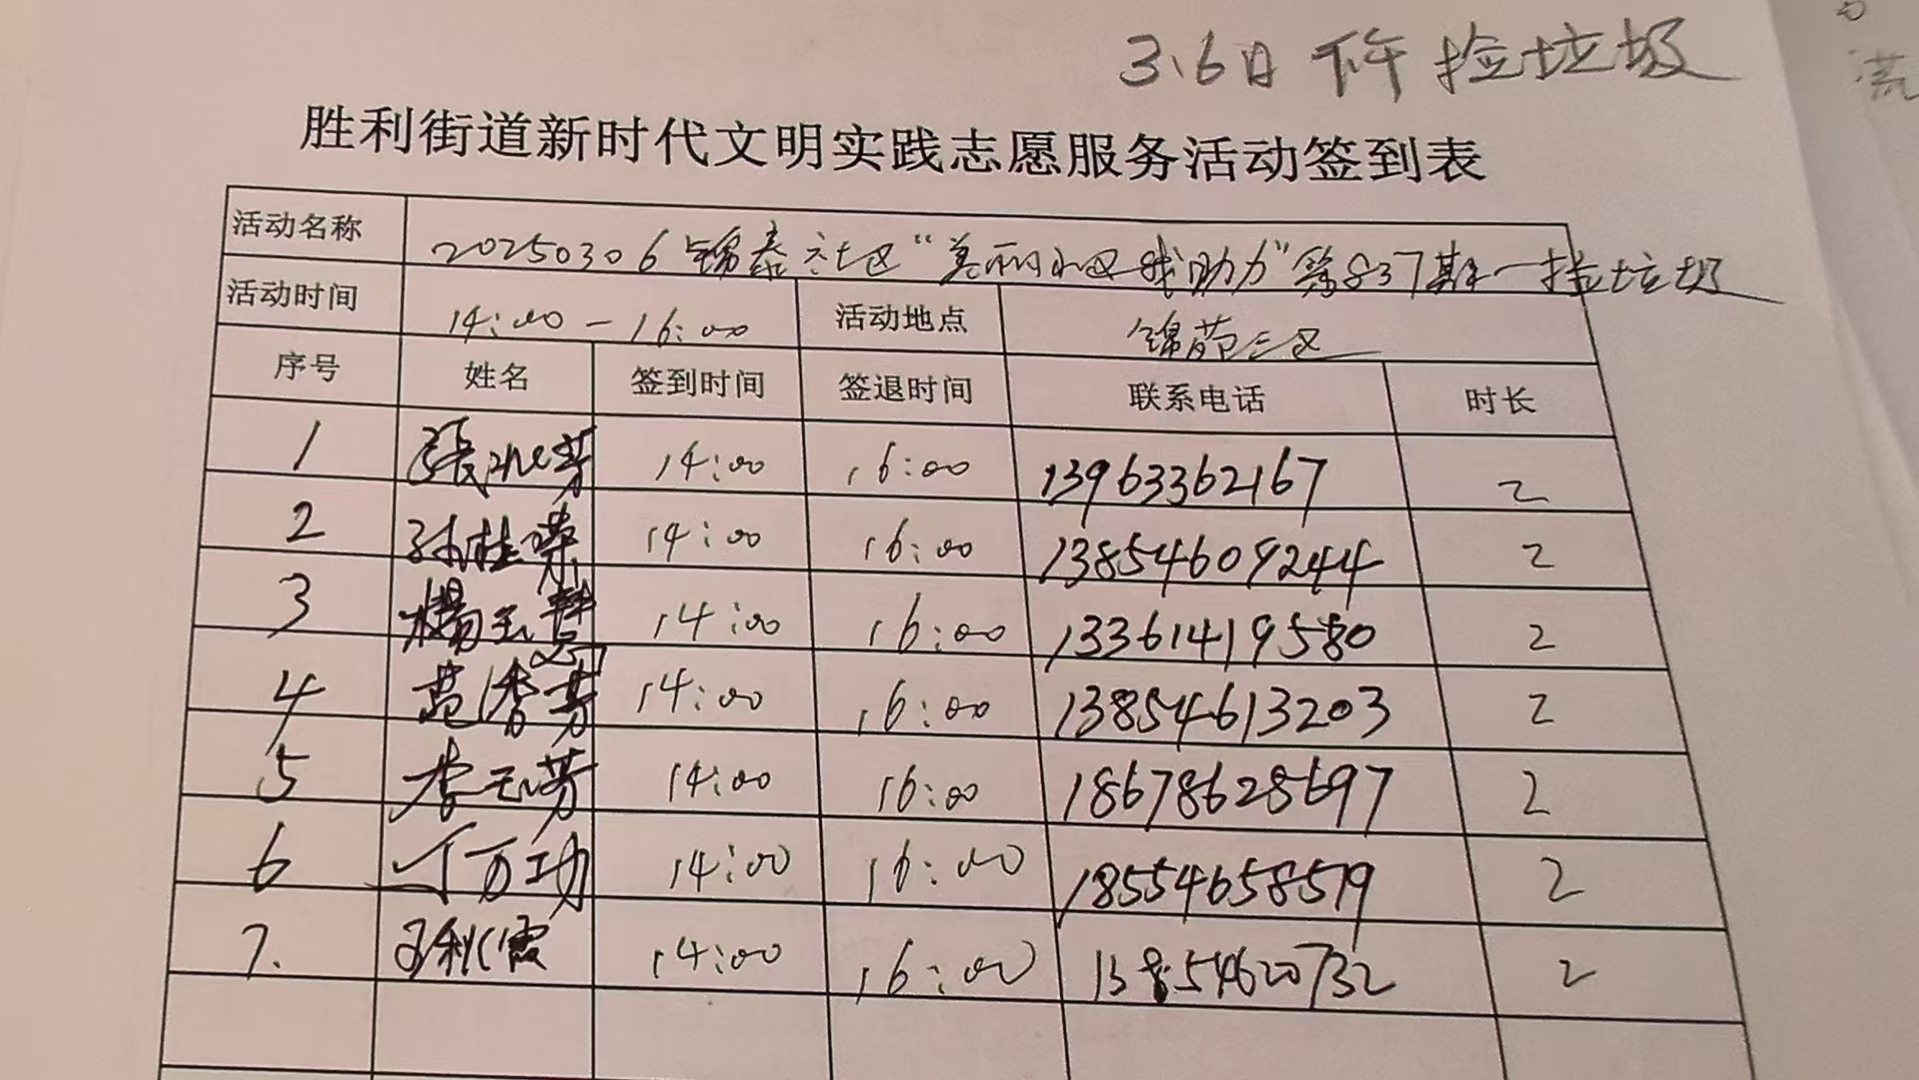 3.6日 下午 捡垃圾
胜利街道新时代文明实践志愿服务活动签到表
活动名称 20250306锦泰社区“美丽小区我助力”第837期一捡垃圾
活动时间 14:00-16:00 活动地点 锦苑三区
序号 姓名 签到时间 签退时间 联系电话 时长
1 張 芳 14:00 16:00 13963362167 2
2 孙桂荣 14:00 16:00 13854609244 2
3 楊玉慧 14:00 16:00 13361419580 2
4 范香芳 14:00 16:00 13854613203 2
5 李玉芳 14:00 16:00 18678628697 2
6 丁万功 14:00 16:00 18554658519 2
7. 王利霞 14:00 16:00 13854620732 2